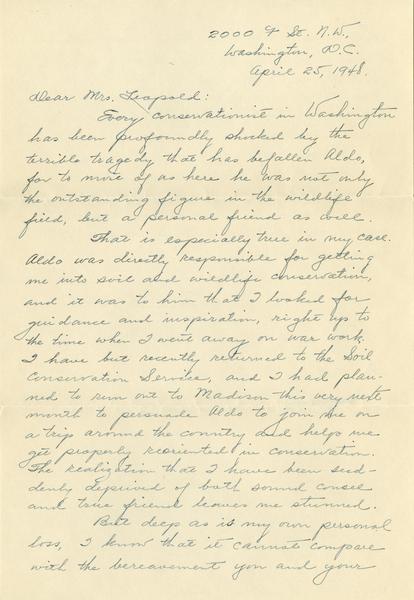 2000 F St. N.W.,
Washington, D.C.
April 25, 1948.
Dear Mrs. Leopold:
Every conservationist in Washington
has been profoundly shocked by the
terrible tragedy that has befallen Aldo,
for to more of us here he was not only
the outstanding figure in the wildlife
field, but a personal friend as well.
That is especially true in my case.
Aldo was directly responsible for getting
me into soil and wildlife conservation,
and it was to him that I looked for
guidance and inspiration, right up to
the time when I went away on war work.
I have but recently returned to the Soil
Conservation Service, and I had plan-
ned to run out to Madison this very next
month to persuade Aldo to join me on
a trip around the country and help me
get properly reoriented in conservation.
The realization that I have been sud-
denly deprived of both sound counsel
and true friend leaves me stunned.
But deep as is my own personal
loss, I know that it cannot compare
with the bereavement you and your